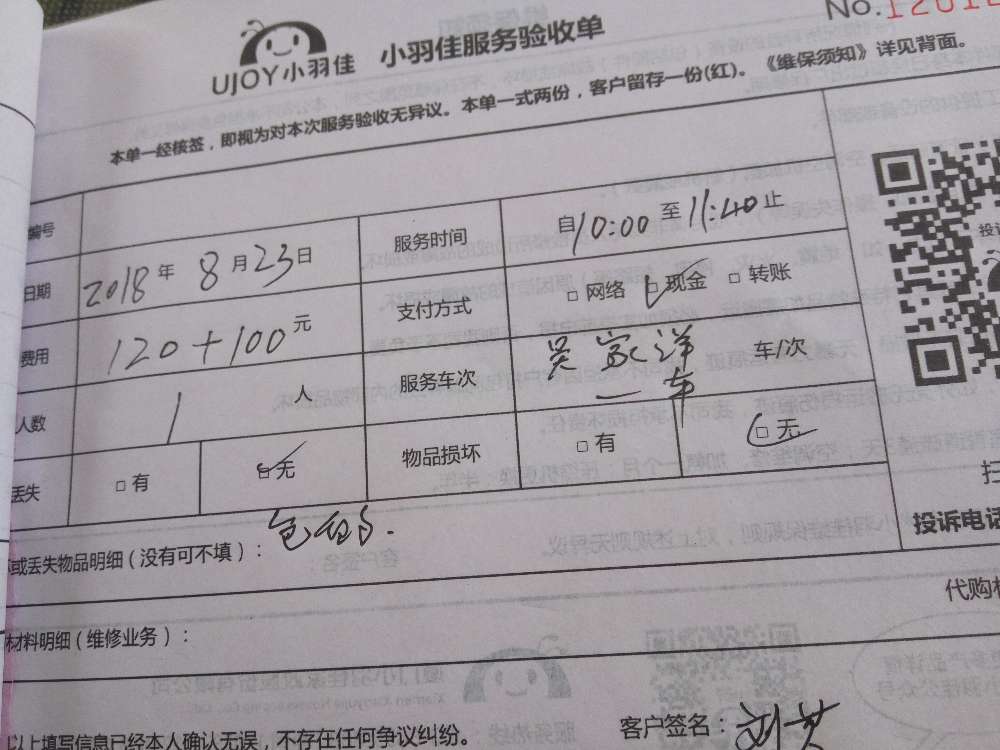 No.1201
UJOY小羽佳 小羽佳服务验收单
本单一经核签，即视为对本次服务验收无异议。本单一式两份，客户留存一份(红)。《维保须知》详见背面。
编号
日期 2018年8月23日 服务时间 自10:00至11:40止
费用 120+100元 支付方式 □网络 □现金 □转账
人数 1人 服务车次 一车 车/次
丢失 □有 □无 物品损坏 □有 □无
或丢失物品明细（没有可不填）：
投诉电话
代购
材料明细（维修业务）：
以上填写信息已经本人确认无误，不存在任何争议纠纷。
客户签名：刘